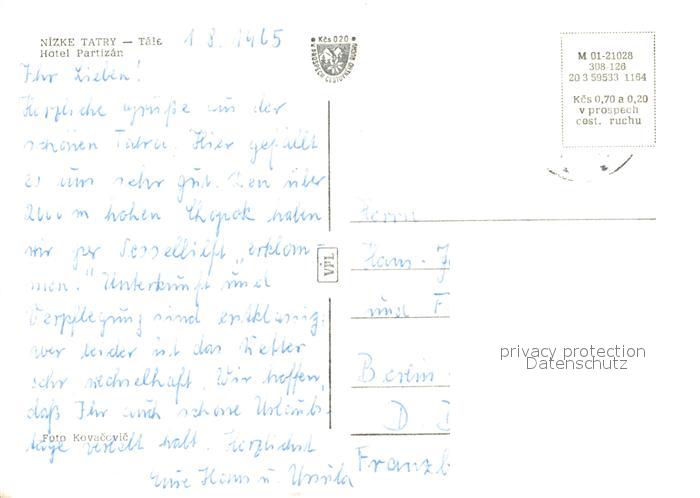 NÍZKE TATRY — Tále
Hotel Partizán
1 8. 1965
Ihr Lieben!
Herzliche Grüße aus der
schönen Tatra. Hier gefällt
es uns sehr gut. Den über
2000 m hohen Chopok haben
wir per Sessellift „erklom-
men." Unterkunft und
Verpflegung sind erstklassig,
aber leider ist das Wetter
sehr wechselhaft. Wir hoffen,
daß Ihr auch schöne Urlaubs-
tage verlebt habt. Herzlichst
Eure Hans u. Ursula
Foto Kovačovič
Kčs 0.20
V PROSPECH CESTOVNÉHO RUCHU
VPL
M 01-21028
308-126
20 3 59533 1164
Kčs 0,70 a 0,20
v prospech
cest. ruchu
Herrn
Hans-J
und F
Berlin
D D
Franzb
privacy protection
Datenschutz